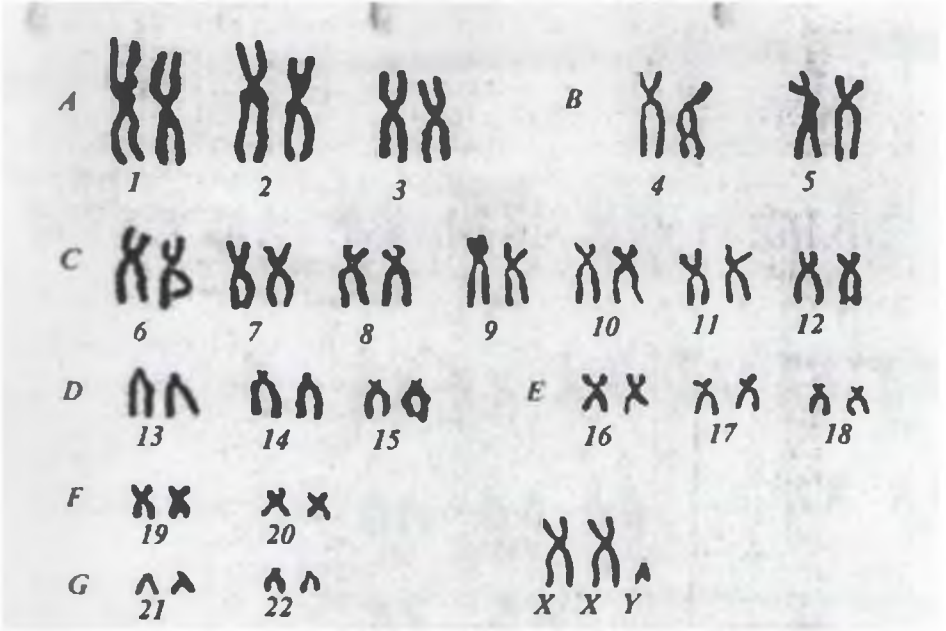 A B
1 2 3 4 5
C
6 7 8 9 10 11 12
D E
13 14 15 16 17 18
F
19 20
G
21 22 X X Y